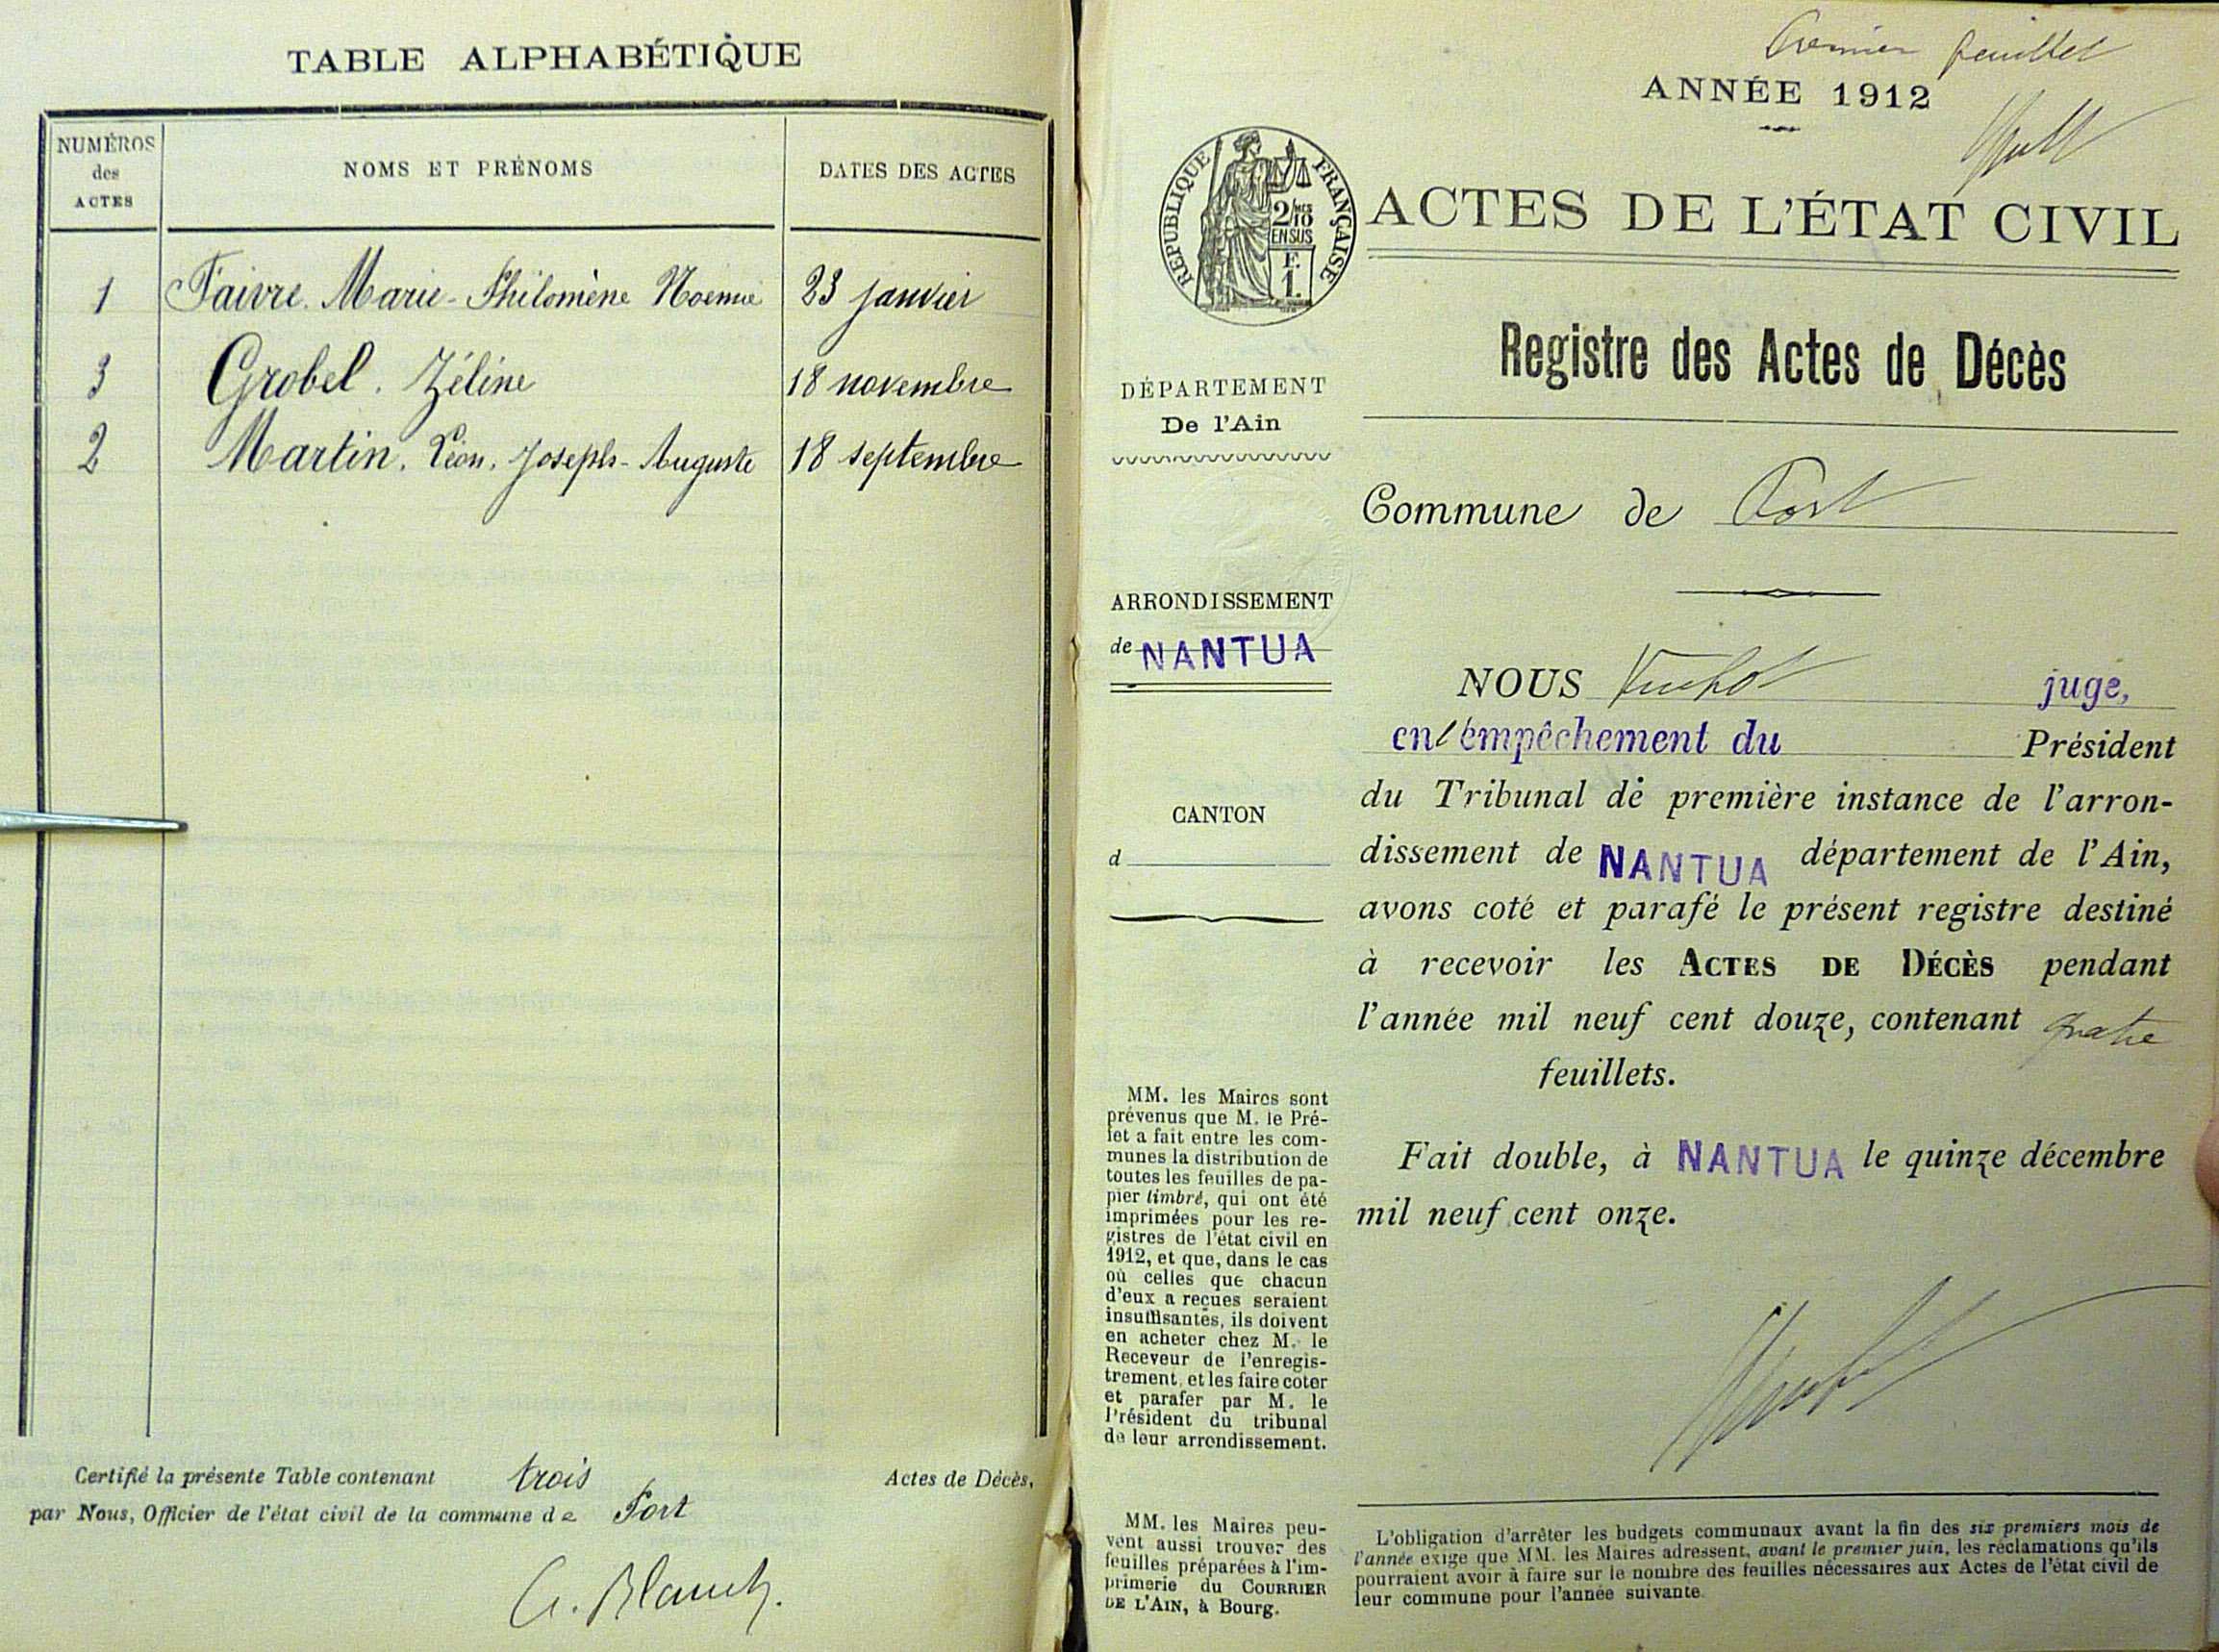 TABLE ALPHABÉTIQUE
NUMÉROS
des
ACTES
NOMS ET PRÉNOMS
DATES DES ACTES
1 Faivre Marie-Philomène Noémie 23 janvier
3 Grobel. Zéline 18 novembre
2 Martin. Léon. Joseph-Auguste 18 septembre
Certifié la présente Table contenant trois Actes de Décès,
par Nous, Officier de l'état civil de la commune de Port
Premier feuillet
ANNÉE 1912
RÉPUBLIQUE FRANÇAISE
2/10 MES
EN SUS
F.
1.
ACTES DE L'ÉTAT CIVIL
Registre des Actes de Décès
DÉPARTEMENT
De l'Ain
Commune de Port
ARRONDISSEMENT
de NANTUA
CANTON
d
NOUS juge,
en l'empêchement du Président
du Tribunal de première instance de l'arron-
dissement de NANTUA département de l'Ain,
avons coté et parafé le présent registre destiné
à recevoir les ACTES DE DÉCÈS pendant
l'année mil neuf cent douze, contenant quatre
feuillets.
Fait double, à NANTUA le quinze décembre
mil neuf cent onze.
MM. les Maires sont
prévenus que M. le Pré-
fet a fait entre les com-
munes la distribution de
toutes les feuilles de pa-
pier timbré, qui ont été
imprimées pour les re-
gistres de l'état civil en
1912, et que, dans le cas
où celles que chacun
d'eux a reçues seraient
insuffisantes, ils doivent
en acheter chez M. le
Receveur de l'enregis-
trement, et les faire coter
et parafer par M. le
Président du tribunal
de leur arrondissement.
MM. les Maires peu-
vent aussi trouver des
feuilles préparées à l'im-
primerie du COURRIER
DE L'AIN, à Bourg.
L'obligation d'arrêter les budgets communaux avant la fin des six premiers mois de
l'année exige que MM. les Maires adressent, avant le premier juin, les réclamations qu'ils
pourraient avoir à faire sur le nombre des feuilles nécessaires aux Actes de l'état civil de
leur commune pour l'année suivante.